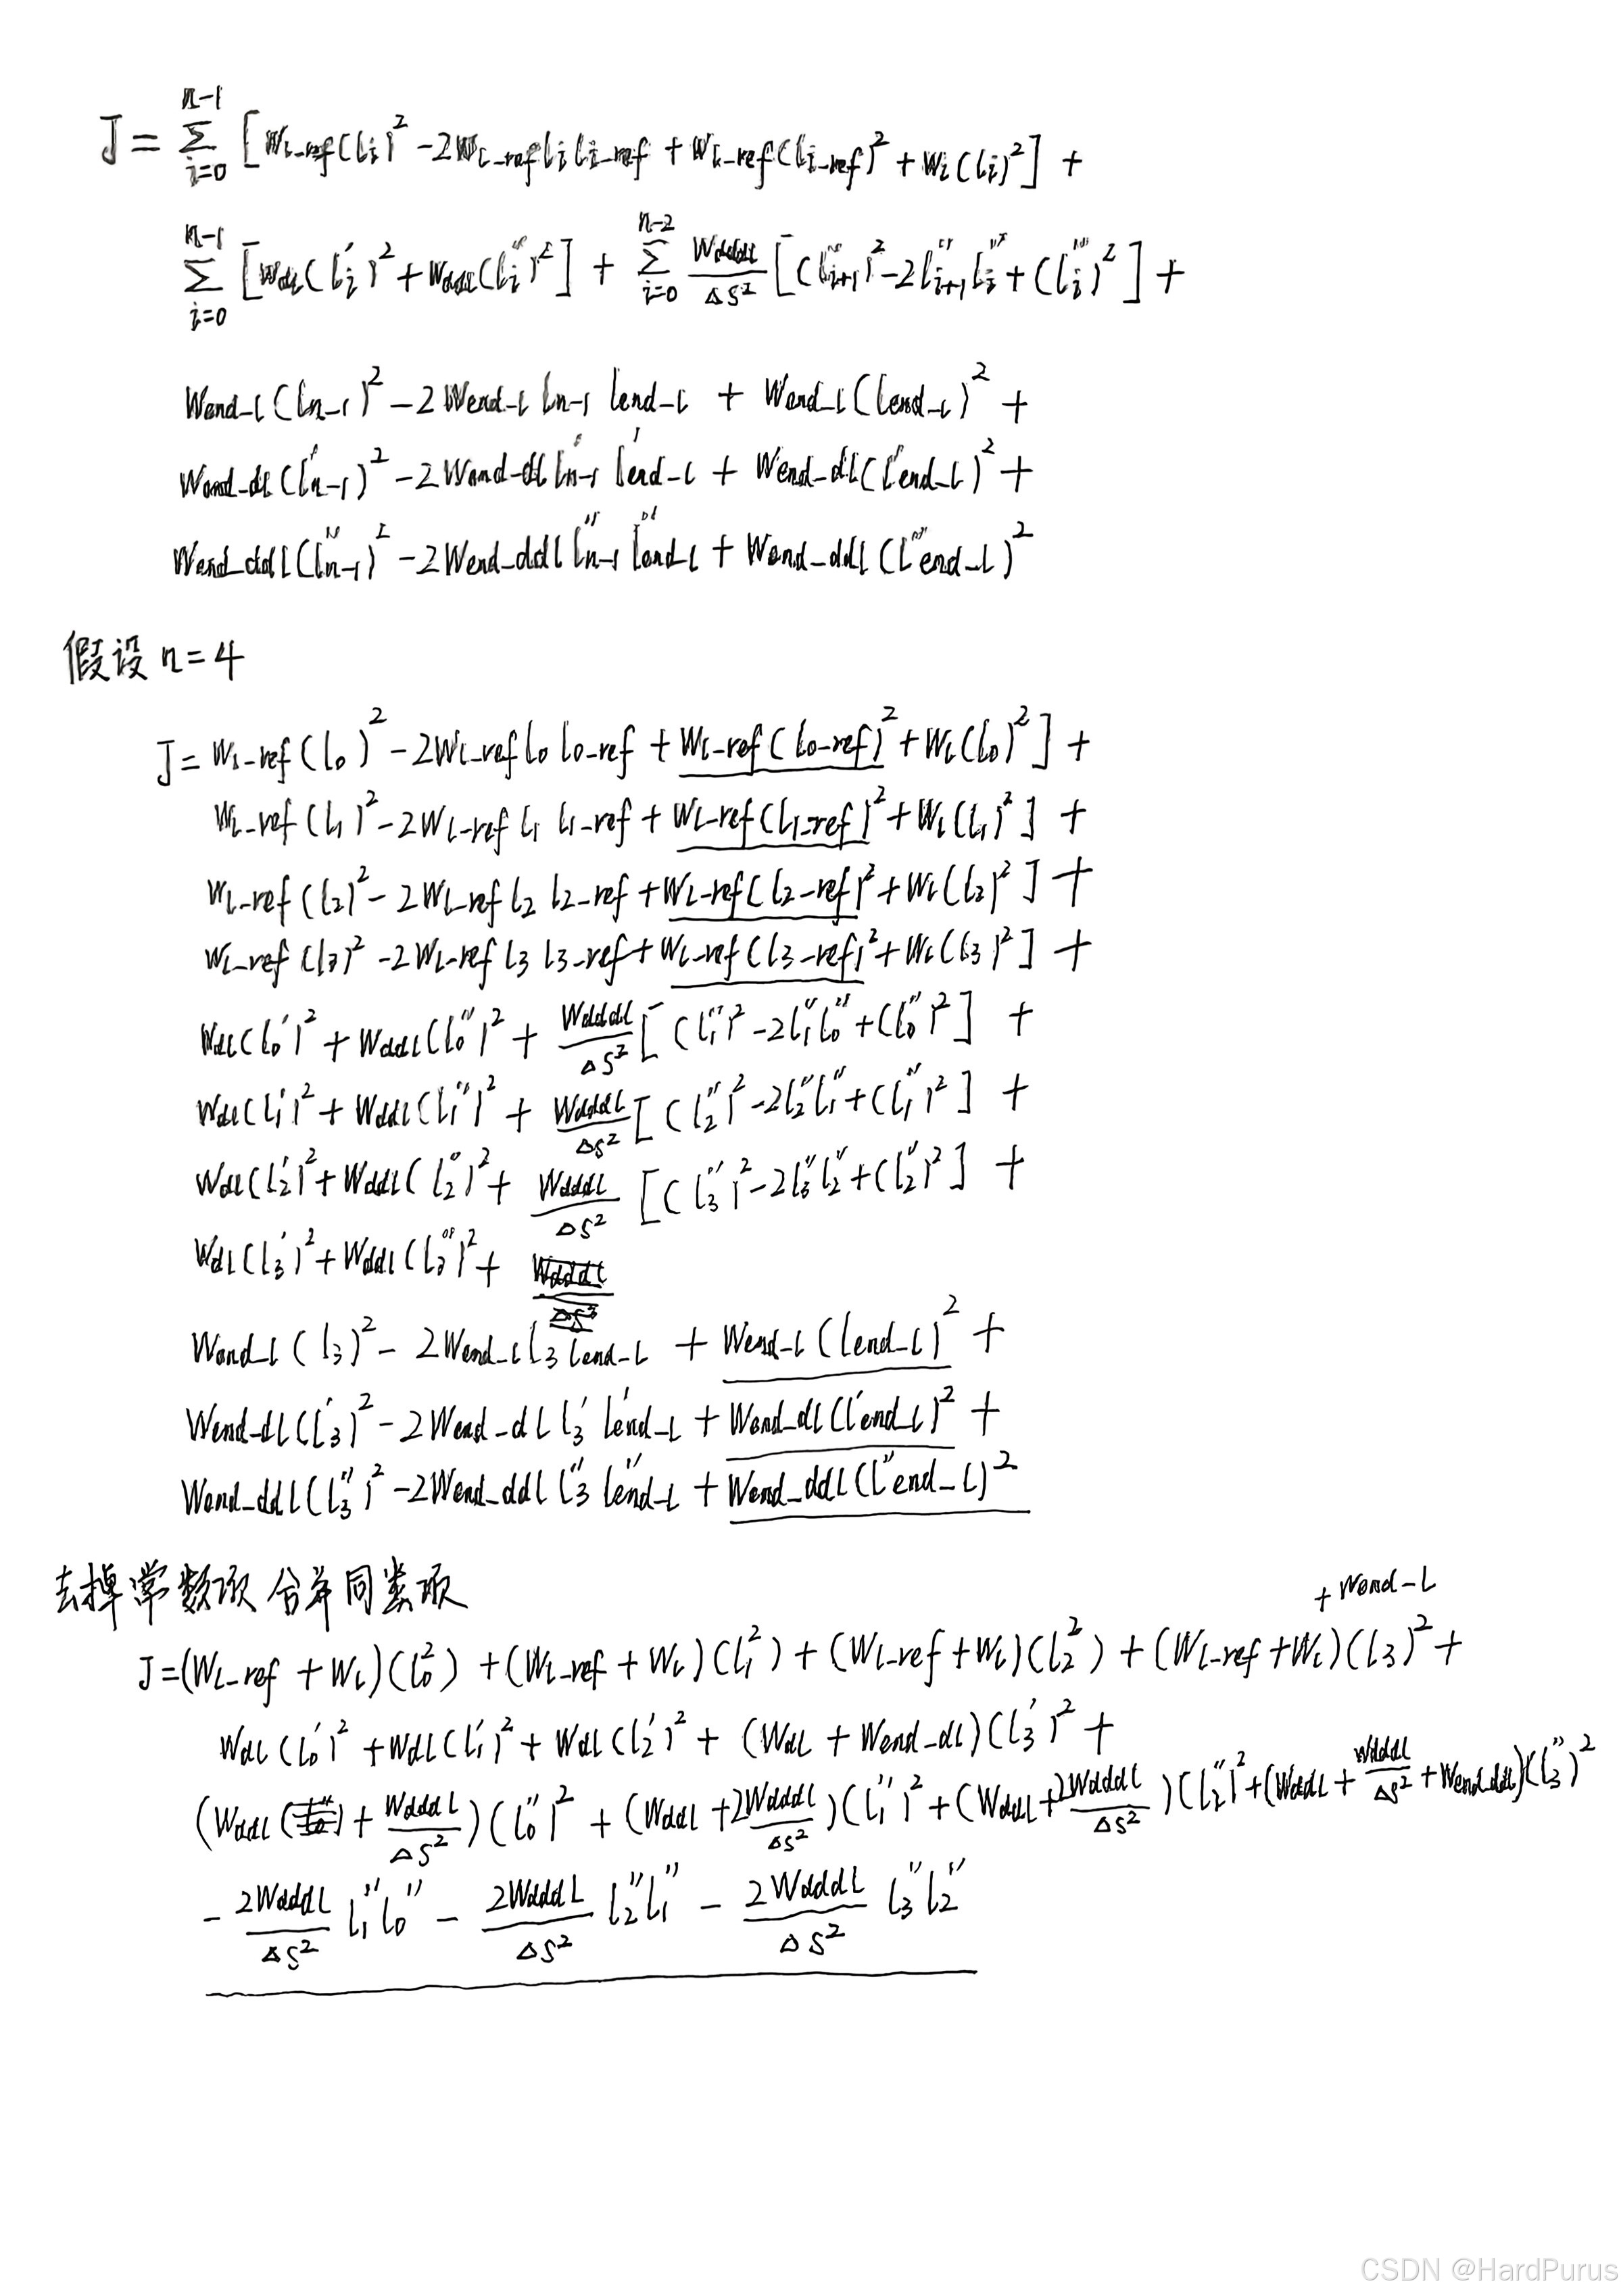 J = Σ_{i=0}^{n-1} [w_{l-ref}(l_i)² - 2w_{l-ref} l_i l_{i-ref} + w_{l-ref}(l_{i-ref})² + w_l(l_i)²] +
Σ_{i=0}^{n-1} [w_{dl}(l_i')² + w_{ddl}(l_i'')²] + Σ_{i=0}^{n-2} w_{dddl}/Δs² [(l_{i+1}'')² - 2l_{i+1}'' l_i'' + (l_i'')²] +
w_{end-l}(l_{n-1})² - 2w_{end-l} l_{n-1} l_{end-l} + w_{end-l}(l_{end-l})² +
w_{end-dl}(l_{n-1}')² - 2w_{end-dl} l_{n-1}' l'_{end-l} + w_{end-dl}(l'_{end-l})² +
w_{end-ddl}(l_{n-1}'')² - 2w_{end-ddl} l_{n-1}'' l''_{end-l} + w_{end-ddl}(l''_{end-l})²
假设 n=4
J = w_{l-ref}(l_0)² - 2w_{l-ref} l_0 l_{0-ref} + w_{l-ref}(l_{0-ref})² + w_l(l_0)²] +
w_{l-ref}(l_1)² - 2w_{l-ref} l_1 l_{1-ref} + w_{l-ref}(l_{1-ref})² + w_l(l_1)²] +
w_{l-ref}(l_2)² - 2w_{l-ref} l_2 l_{2-ref} + w_{l-ref}(l_{2-ref})² + w_l(l_2)²] +
w_{l-ref}(l_3)² - 2w_{l-ref} l_3 l_{3-ref} + w_{l-ref}(l_{3-ref})² + w_l(l_3)²] +
w_{dl}(l_0')² + w_{ddl}(l_0'')² + w_{dddl}/Δs² [(l_1'')² - 2l_1'' l_0'' + (l_0'')²] +
w_{dl}(l_1')² + w_{ddl}(l_1'')² + w_{dddl}/Δs² [(l_2'')² - 2l_2'' l_1'' + (l_1'')²] +
w_{dl}(l_2')² + w_{ddl}(l_2'')² + w_{dddl}/Δs² [(l_3'')² - 2l_3'' l_2'' + (l_2'')²] +
w_{dl}(l_3')² + w_{ddl}(l_3'')² +
w_{end-l}(l_3)² - 2w_{end-l} l_3 l_{end-l} + w_{end-l}(l_{end-l})² +
w_{end-dl}(l_3')² - 2w_{end-dl} l_3' l'_{end-l} + w_{end-dl}(l'_{end-l})² +
w_{end-ddl}(l_3'')² - 2w_{end-ddl} l_3'' l''_{end-l} + w_{end-ddl}(l''_{end-l})²
去掉常数项 合并同类项
+ w_{end-l}
J = (w_{l-ref} + w_l)(l_0²) + (w_{l-ref} + w_l)(l_1²) + (w_{l-ref} + w_l)(l_2²) + (w_{l-ref} + w_l)(l_3)² +
w_{dl}(l_0')² + w_{dl}(l_1')² + w_{dl}(l_2')² + (w_{dl} + w_{end-dl})(l_3')² +
(w_{ddl} + w_{dddl}/Δs²)(l_0'')² + (w_{ddl} + 2w_{dddl}/Δs²)(l_1'')² + (w_{ddl} + 2w_{dddl}/Δs²)(l_2'')² + (w_{ddl} + w_{dddl}/Δs² + w_{end-ddl})(l_3'')²
- 2w_{dddl}/Δs² l_1'' l_0'' - 2w_{dddl}/Δs² l_2'' l_1'' - 2w_{dddl}/Δs² l_3'' l_2''
CSDN @HardPurus